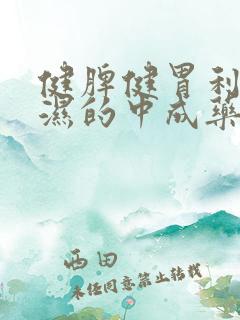 健脾健胃利
湿的中成药
西田
未经同意禁止转载